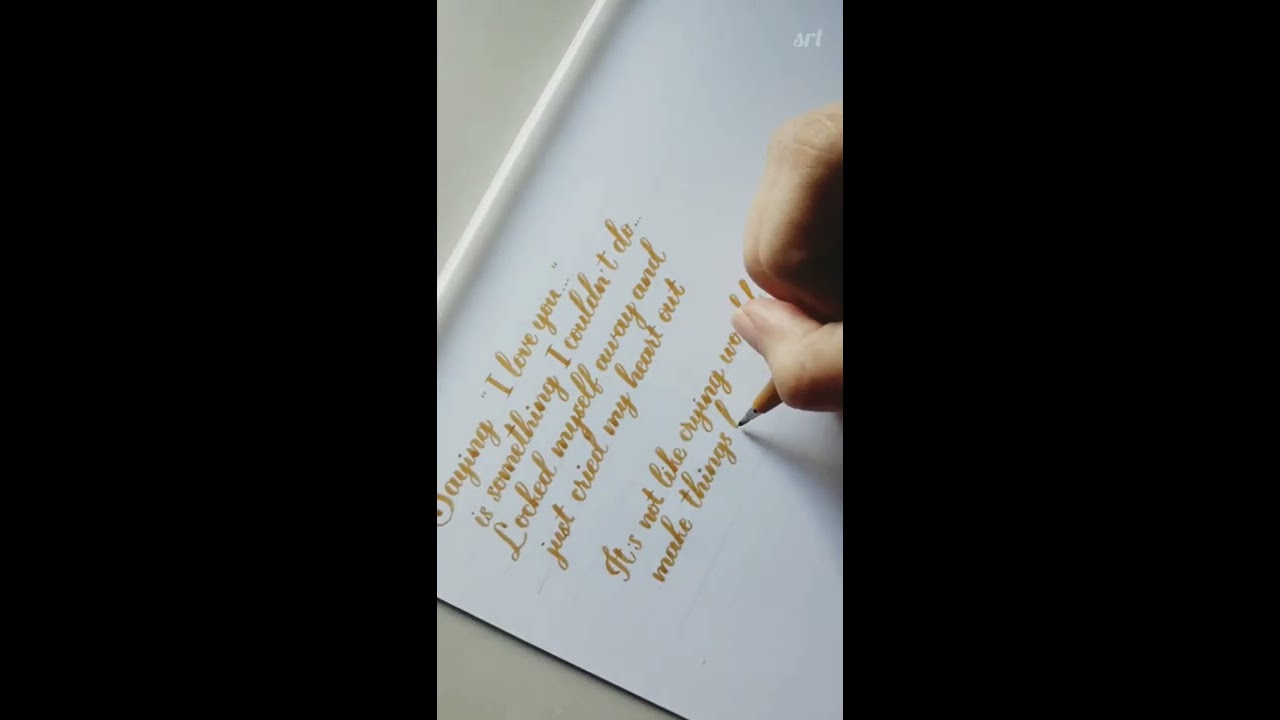 srt
Saying "I love you..."
is something I couldn't do...
Locked myself away and
just cried my heart out
It's not like crying
make things